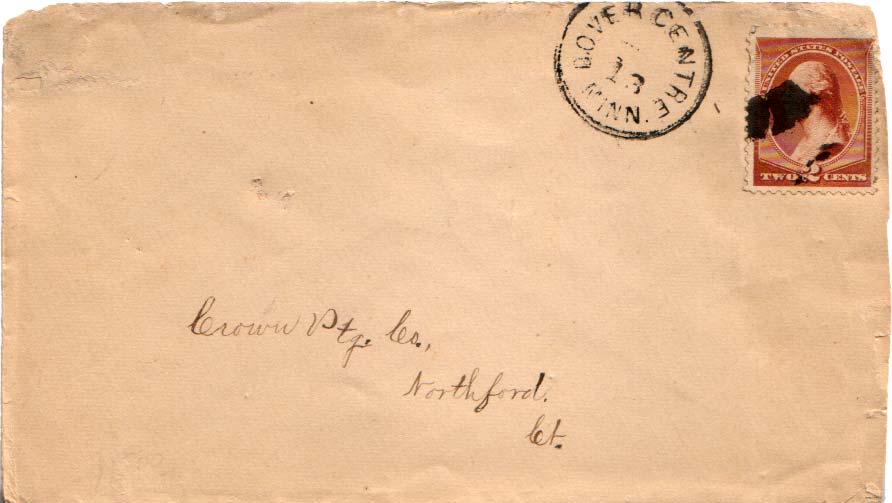 DOVER CENTRE
13
MINN.
UNITED STATES POSTAGE
TWO 2 CENTS
Crown Ptg. Co.,
Northford.
Ct.